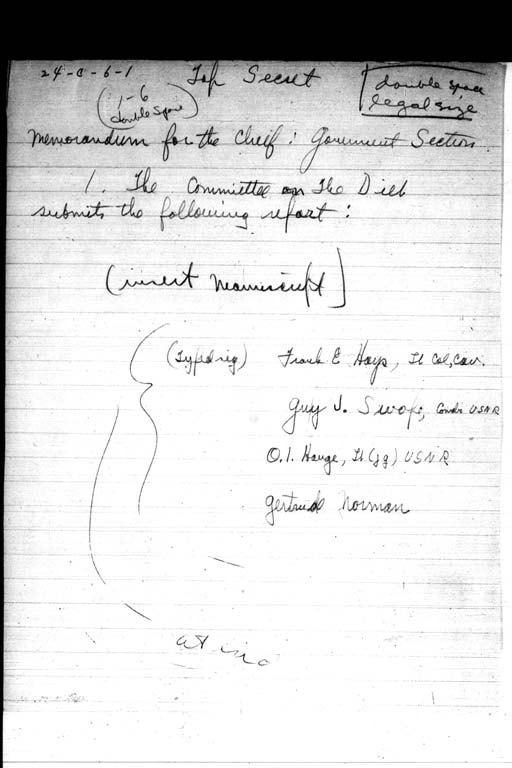 24-C-6-1
Top Secret
double space
legal size
1-6
double Space
Memorandum for the Chief: Government Section
1. The Committee on The Diet
submits the following report:
(insert manuscript]
(Typed sig) Frank E Hays, Lt Col, Cav.
Guy J. Swope, Comdr USNR
O. I. Hauge, Lt (jg) USNR
Gertrude Norman